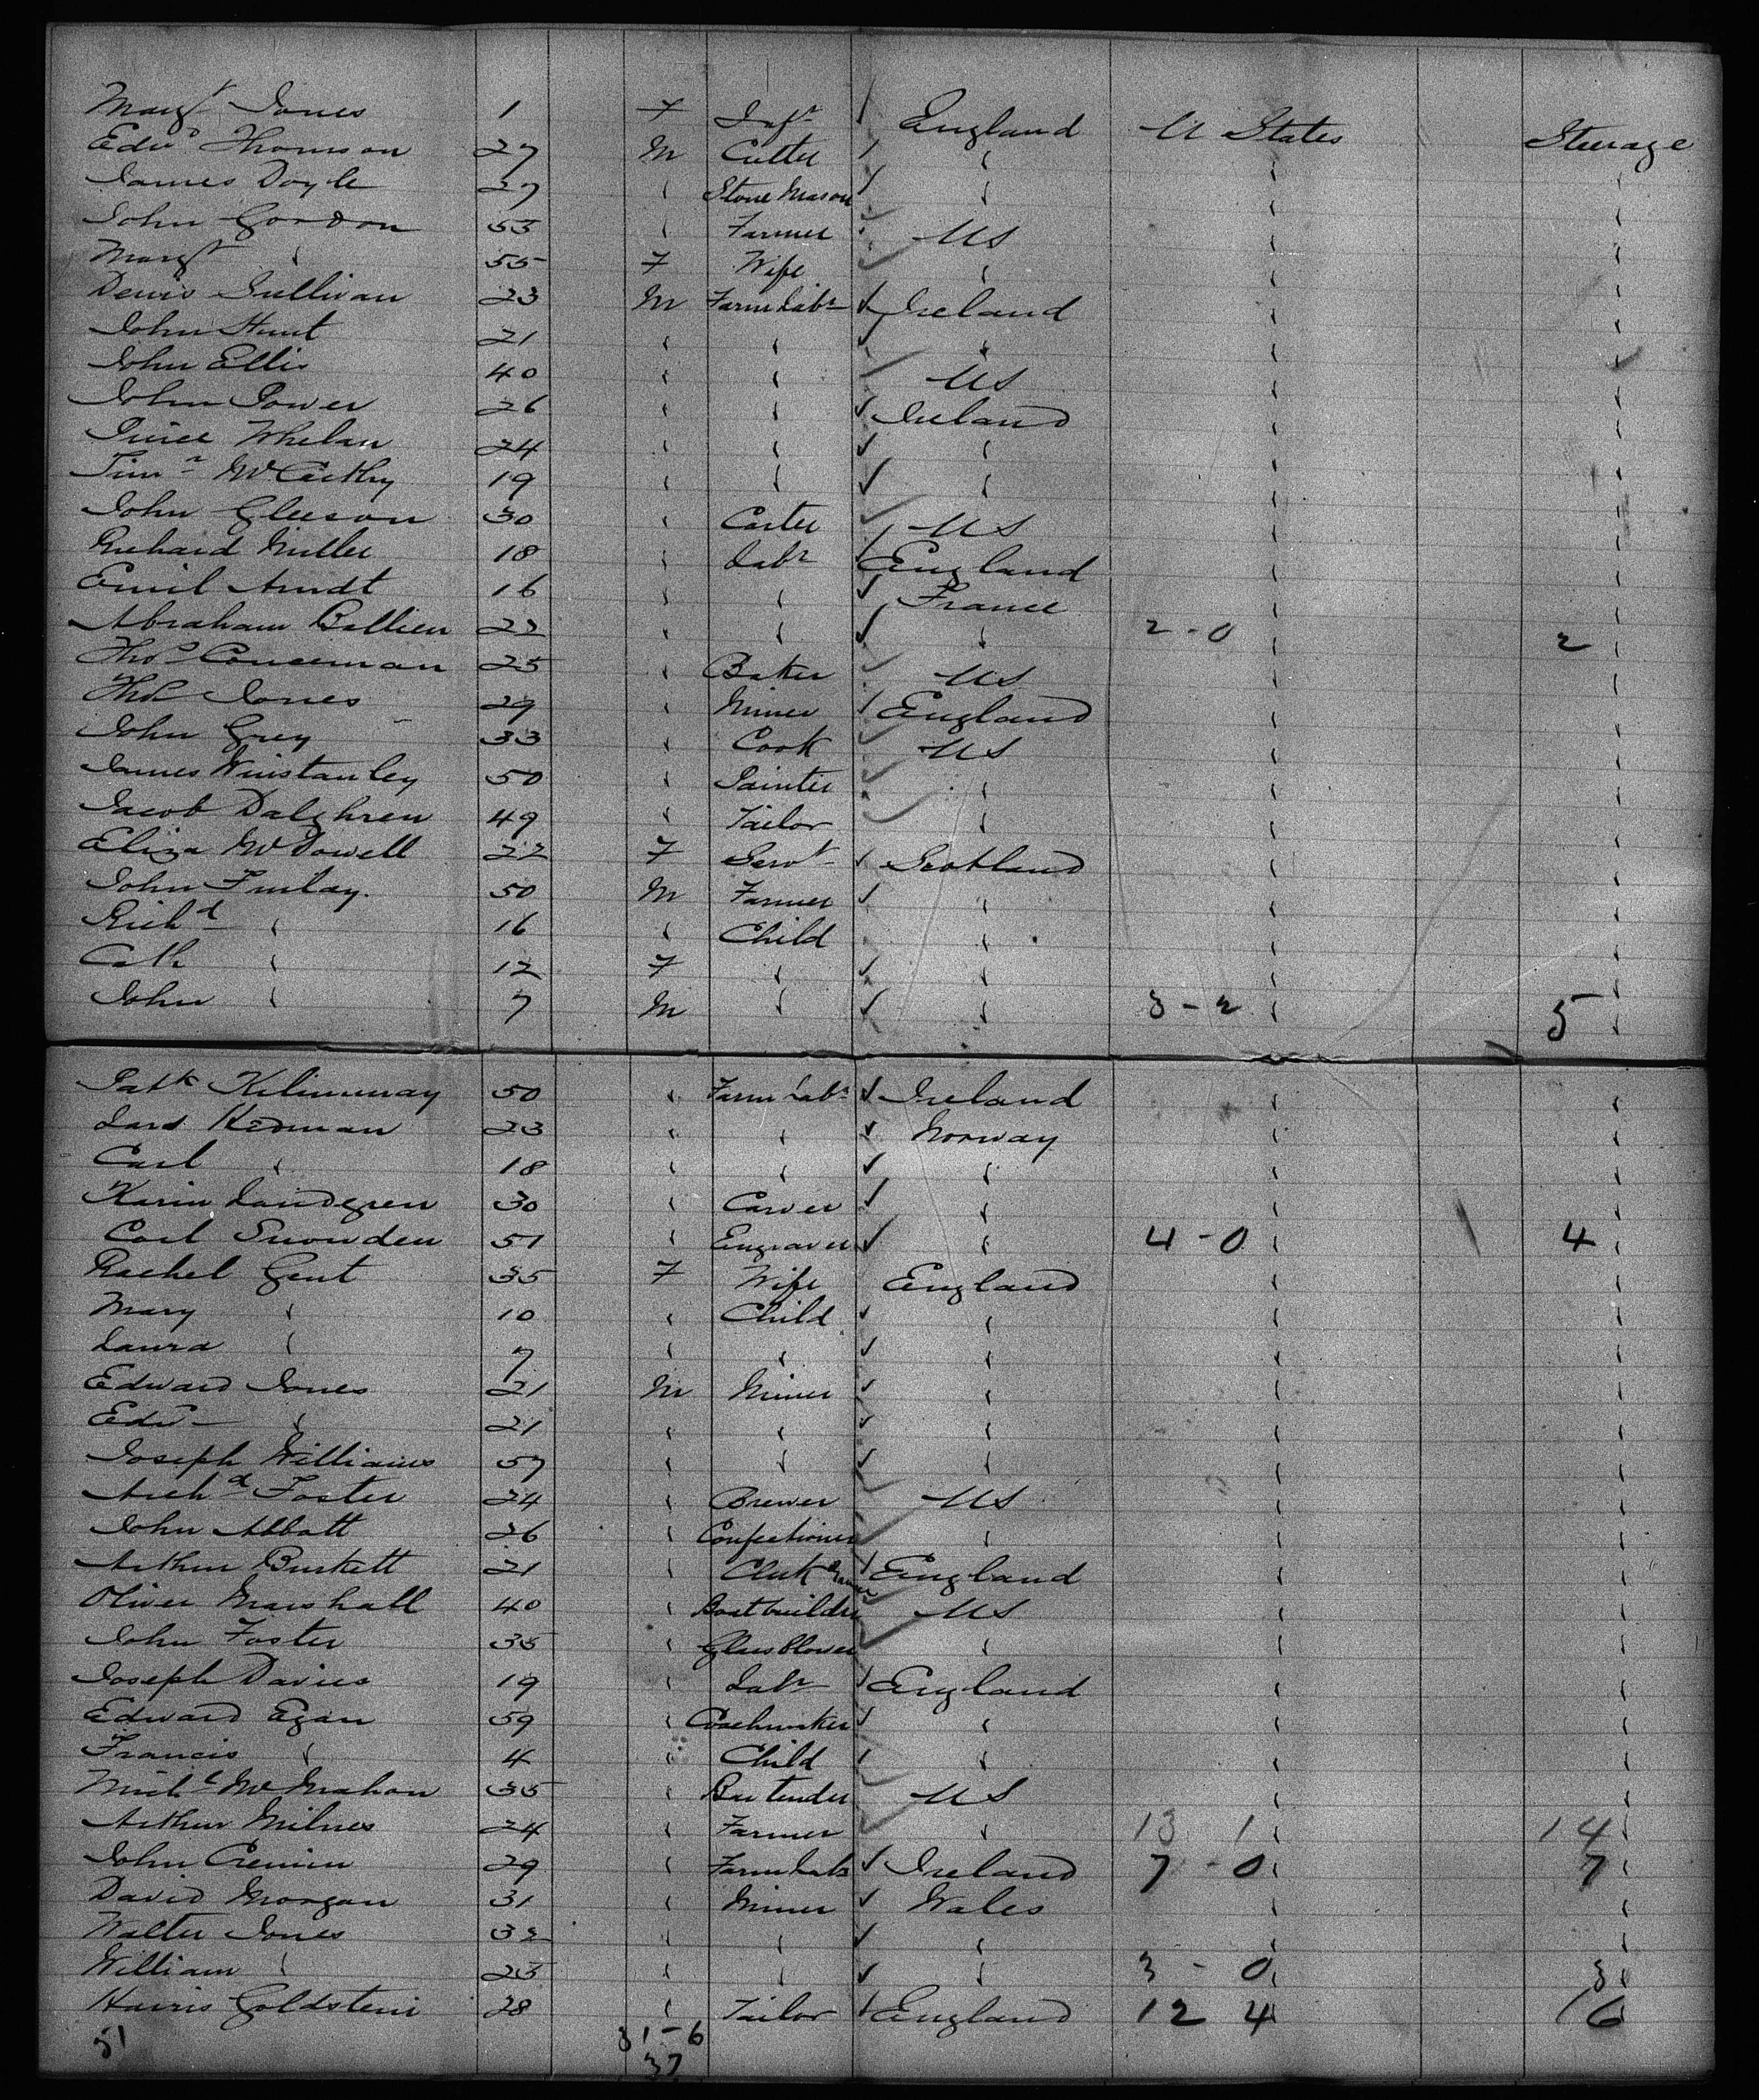 Margt Jones 1 F Inft England U States Steerage
Edwd Thomson 27 M Cutter " " "
James Doyle 27 " Stone Mason " " "
John Gordon 53 " Farmer US " "
Margt " 55 F Wife " " "
Denis Sullivan 23 M Farm Labr Ireland " "
John Hunt 21 " " " " "
John Ellis 40 " " US " "
John Power 26 " " Ireland " "
Whelan 24 " " " " "
Timy McCarthy 19 " " " " "
John Gleeson 30 " Carter US " "
Richard Miller 18 " Labr England " "
Emil Arndt 16 " " France " "
Abraham Ballieu 22 " " " 2-0 " 2 "
Thos Conceman 25 " Baker US " "
Thos Jones 29 " Miner England " "
John Grey 33 " Cook US " "
James Winstanley 50 " Painter " " "
Jacob Dalghren 49 " Tailor " " "
Eliza McDowell 22 F Servt Scotland " "
John Finlay 50 M Farmer " " "
Richd " 16 " Child " " "
Cath " 12 F " " " "
John " 7 M " " 3-2 " 5 "
Patk 50 " Farm Labr Ireland " "
Lars Hedman 23 " " Norway " "
Carl " 18 " " " " "
Karin Landgren 30 " Carver " " "
Carl Snowden 51 " Engraver " 4-0 " 4 "
Rachel Gent 35 F Wife England " "
Mary " 10 " Child " " "
Laura " 7 " " " " "
Edward Jones 21 M Miner " " "
Edwd " 21 " " " " "
Joseph Williams 57 " " " " "
Archd Foster 24 " Brewer US " "
John Abbott 26 " Confectioner " " "
Arthur Burkett 21 " Clerk England " "
Oliver Marshall 40 " Boatbuilder US " "
John Foster 35 " Glassblower " " "
Joseph Davies 19 " Labr England " "
Edward Egan 59 " Coachmaker " " "
Francis " 4 " Child " " "
Michl McMahon 35 " Bartender US " "
Arthur Milnes 24 " Farmer " 13 1 " 14 "
John Cremin 29 " Farm Labr Ireland 7-0 " 7 "
David Morgan 31 " Miner Wales " "
Walter Jones 32 " " " " "
William " 23 " " " 3-0 " 3 "
Harris Goldstein 28 " Tailor England 12 4 16
51 31-6
37